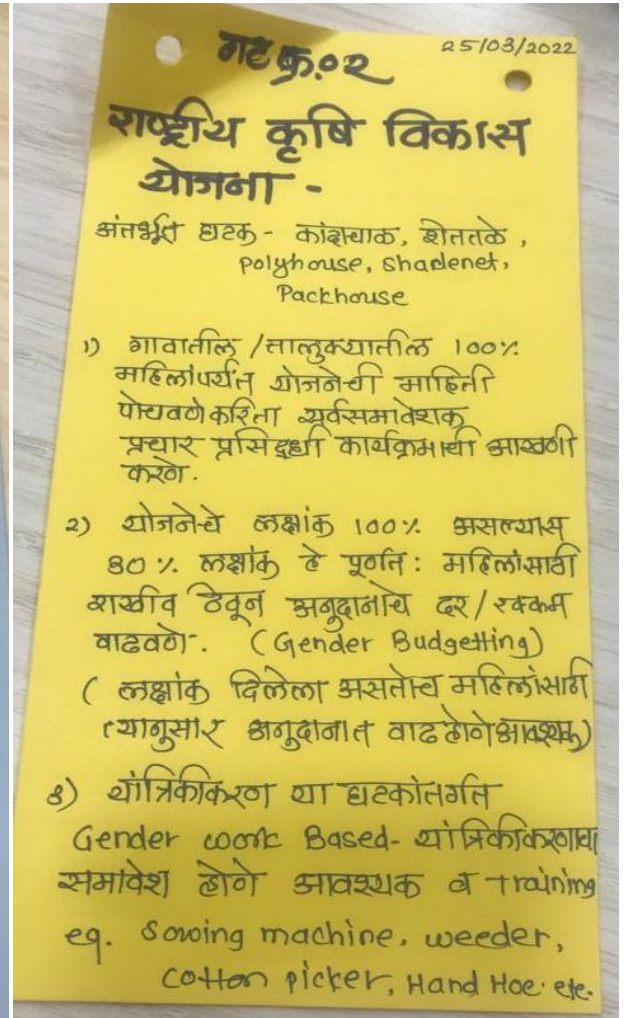 गट क्र.०२
25/03/2022
राष्ट्रीय कृषि विकास
योजना -
अंतर्भूत घटक - कांदाचाळ, शेततळे,
Polyhouse, Shadenet,
Packhouse
१) गावातील /तालुक्यातील 100%
महिलांपर्यंत योजनेची माहिती
पोचवणेकरिता सर्वसमावेशक
प्रचार प्रसिद्धी कार्यक्रमाची आखणी
करणे.
२) योजनेचे लक्षांक 100% असल्यास
30% लक्षांक हे पूर्णत: महिलांसाठी
राखीव ठेवून अनुदानाचे दर/रक्कम
वाढवणे. (Gender Budgetting)
( लक्षांक दिलेला असतोच महिलांसाठी
त्यानुसार अनुदानात वाढ होणे आवश्यक)
३) यांत्रिकीकरण या घटकांतर्गत
Gender work Based- यांत्रिकीकरणाचा
समावेश होणे आवश्यक व training
eg. Sowing machine, weeder,
cotton picker, Hand Hoe. etc.